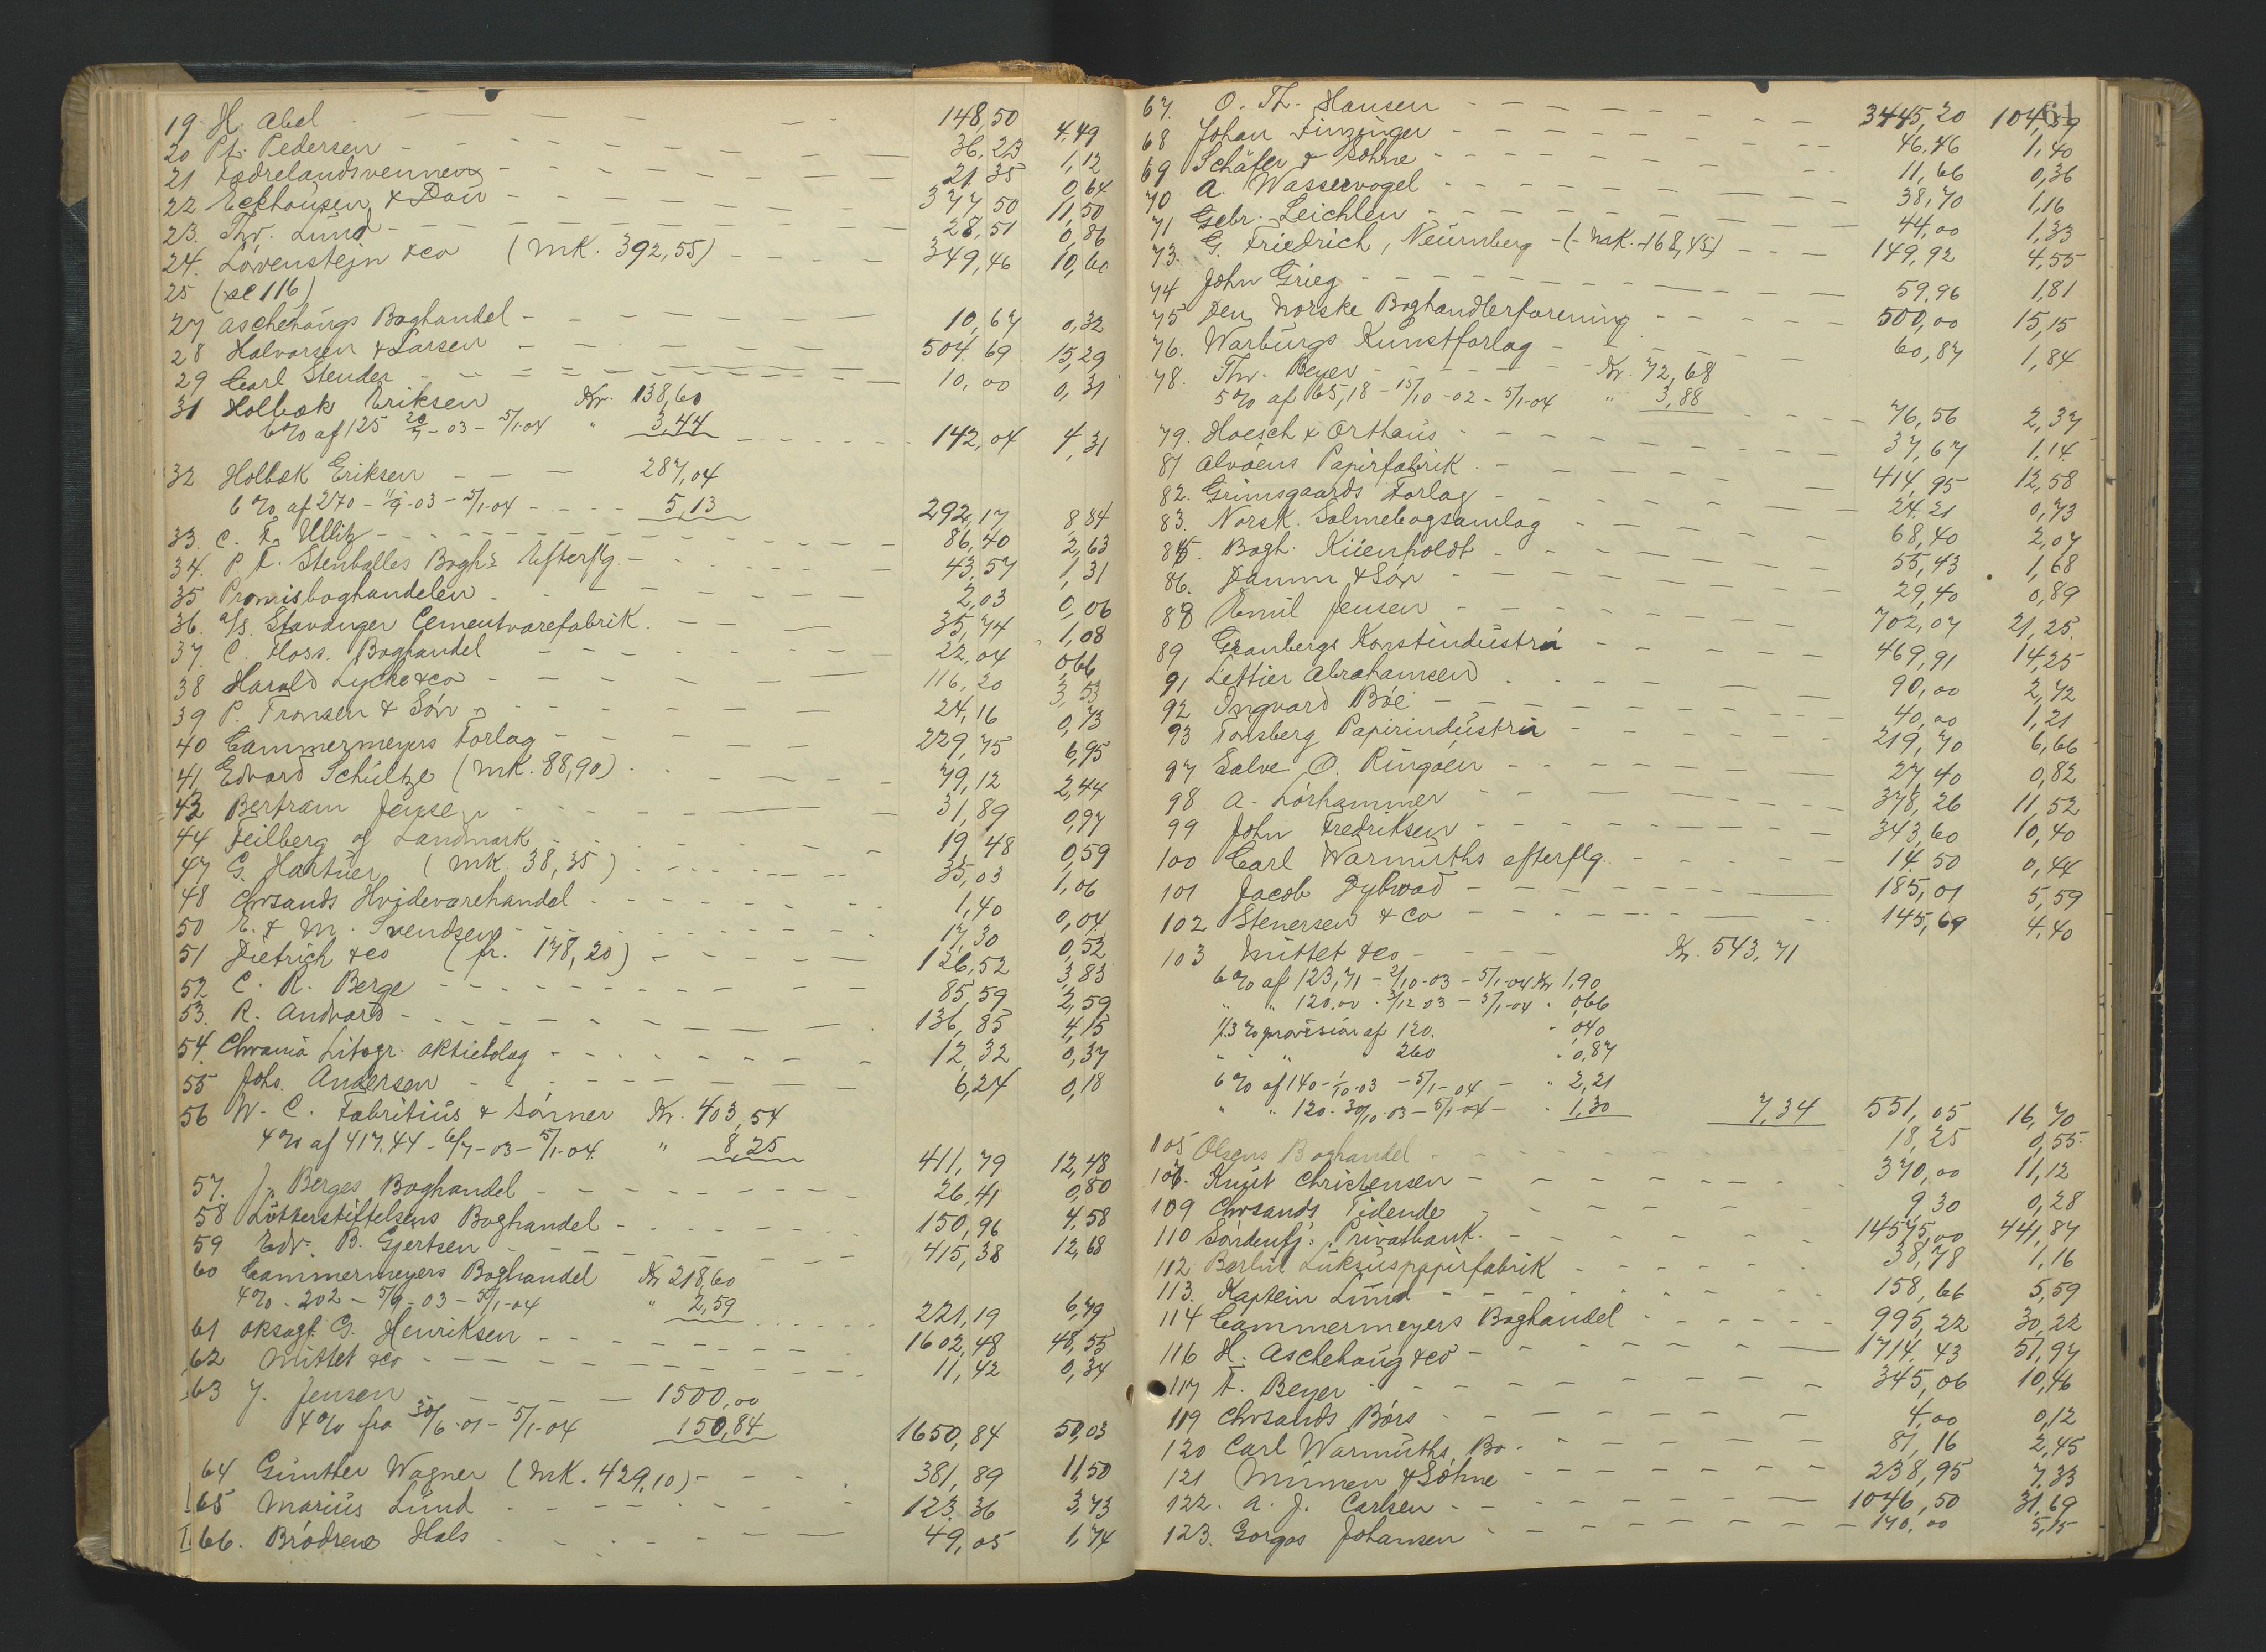 19 H. Abel 148,50 4,49
20 Pt. Pedersen 36,23 1,12
21 Fædrelandsvennen 21,35 0,64
22 Eckhausen & Dau 377,50 11,50
23. Thv. Lund 28,51 0,86
24. Løvenstejn & co (Mk. 392,55) 349,46 10,60
25 (se 116)
27 Aschehougs Boghandel 10,67 0,32
28 Halvorsen & Larsen 504,69 15,29
29 Carl Stender 10,00 0,31
31 Holbæk Eriksen Kr. 138,60
6% af 125 20/7-03-5/1-04 " 3,44 142,04 4,31
32 Holbæk Eriksen 287,04
6% af 270-11/9-03-5/1-04 5,13 292,17 8,84
33. C. F. Ullitz 86,40 2,63
34. P. T. Stenballes Bogh's Efterflg. 43,57 1,31
35 Provisboghandelen 2,03 0,06
36. a/s. Stavanger Cementvarefabrik. 35,74 1,08
37. C. Floss. Boghandel 22,04 0,66
38 Harald Lycke & co 116,20 3,53
39 P. Fransen & Søn 24,16 0,73
40 Cammermeyers Forlag 229,75 6,95
41 Edvard Schultze (Mk. 88,90) 79,12 2,44
43 Bertram Jensen 31,89 0,97
44 Feilberg og Landmark 19,48 0,59
47 G. Hartner (Mk. 38,35) 35,03 1,06
48 Chrsands Hvidevarehandel 1,40 0,04
50 E. & M. Svendsen 17,30 0,52
51 Dietrich & co (fr. 178,20) 126,52 3,83
52 C. R. Berge 85,59 2,59
53. R. Andvord 136,85 4,15
54. Chrania Litogr. Aktiebolag 12,32 0,37
55 Johs. Andersen 6,24 0,18
56 W. C. Fabritius & Sønner Kr. 403,54
4% af 417.44-6/7-03-5/1-04. " 8,25 411,79 12,48
57. J. Berges Boghandel 26,41 0,80
58 Lutherstiftelsens Boghandel 150,96 4,58
59 Edv. B. Gjertsen 415,38 12,68
60 Cammermeyers Boghandel Kr 218,60
4% - 202-5/9-03-5/1-04 " 2,59 221,19 6,79
61 Oksagt. G. Henriksen 1602,48 48,55
62 Mittet & co 11,42 0,34
63 J. Jensen 1500,00
4% fra 30/6-01-5/1-04 150,84 1650,84 50,03
64 Günther Wagner (Mk. 429,10) 381,89 11,50
65 Marius Lund 123,36 3,73
66. Brødrene Hals 49,05 1,74
61
67. O. Th. Hansen 3445,20 104,39
68 Johan Finzinger 46.46 1,40
69 Schäfer & Söhne 11,66 0,36
70 A. Wasservogel 38,70 1,16
71 Gebr. Leichlen 44,00 1,33
73. G. Friedrich, Neurnberg (Mk. 168,45) 149,92 4,55
74 John Grieg 59,96 1,81
75 Den Norske Boghandlerforening 500,00 15,15
76. Warburgs Kunstforlag 60,87 1,84
78. Thv. Beyer Kr. 72,68
5% af 65,18-15/10-02-5/1-04 " 3,88 76,56 2,37
79. Hoesch & Orthaus 37,67 1,14
81 Alvøens Papirfabrik 414,95 12,58
82. Grimsgaards Forlag 24.21 0,73
83. Norsk. Salmebogsamlag 68,40 2,07
85. Bogh. Küenholdt 55,43 1,68
86. Damm & Søn 29,40 0,89
88 Emil Jensen 702,07 21,25
89 Granbergs Konstindustri 469,91 14,25
91 Lettier Abrahamsen 90,00 2,72
92 Ingvard Bøe 40,00 1,21
93 Tønsberg Papirindustri 219,70 6,66
97 Salve O. Ringøen 27,40 0,82
98 A. Lörhammer 378,26 11,52
99 John Fredriksen 343,60 10,40
100 Carl Warmuths efterflg. 14,50 0,44
101 Jacob Dybwad 185,01 5,59
102 Stenersen & Co 145,69 4.40
103 Mittet & co Kr. 543,71
6% af 123,71-2/10-03-5/1-04 Kr 1,90
" " 120.00-3/12 03-5/1-04 " 0,66
1/3% provision af 120. " 0,40
" " " 260 " 0,87
6% af 140-1/10-03-5/1-04 " 2,21
" " 120-30/10-03-5/1-04 " 1,30 7,34 551,05 16,70
105 Olsens Boghandel 18,25 0,55
106. Knut Christensen 370,00 11,12
109 Chrsands Tidende 9,30 0,28
110 Sørdenfj. Privatbank 14575,00 441,87
112 Berlin Luksuspapirfabrik 38,78 1,16
113. Kaptein Lund 158,66 5,59
114 Cammermeyers Boghandel 995,22 30,22
116 H. Aschehoug & co 1714,43 51,97
117 F. Beyer 345,06 10,46
119 Chrsands Børs 4,00 0,12
120 Carl Warmuths, Bo 81,16 2,45
121 Mümen & Söhne 238,95 7,33
122. A. J. Carlsen 1046,50 31,69
123. Gorgas Johansen 170,00 5,15